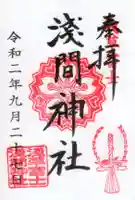 奉拝
浅間神社
令和二年九月二十七日